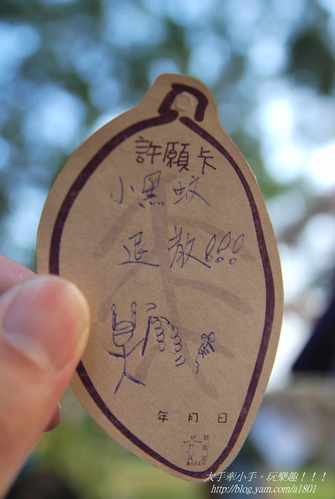 許願卡
小黑蚊
退散!!!
年 月 日
大手牽小手。玩樂趣!!!
http://blog.yam.com/a1801